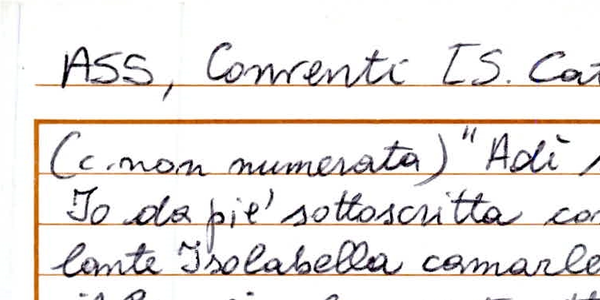 ASS, Conventi [S. Cat
(c. non numerata) "Adì
Io da pie' sottoscritta con
lante Isolabella camarle